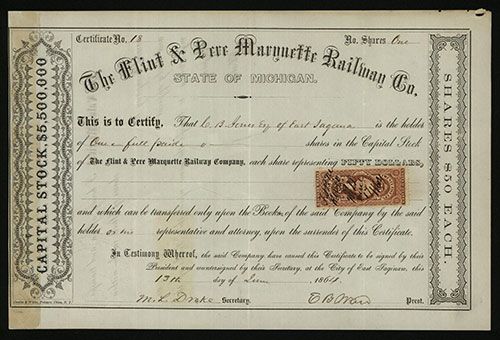 Certificate No. 18 No. Shares One
The Flint & Pere Marquette Railway Co.
STATE OF MICHIGAN.
CAPITAL STOCK, $5,500,000
SHARES $50 EACH.
This is to Certify, That C. B. Esq of East Saginaw is the holder
of One full paid shares in the Capital Stock
of The Flint & Pere Marquette Railway Company, each share representing FIFTY DOLLARS,
and which can be transferred only upon the Books of the said Company by the said
holder or his representative and attorney, upon the surrender of this Certificate.
In Testimony Whereof, the said Company have caused this Certificate to be signed by their
President and countersigned by their Secretary, at the City of East Saginaw, this
13th day of June 1864
M. L. Drake Secretary. E B Ward Prest.